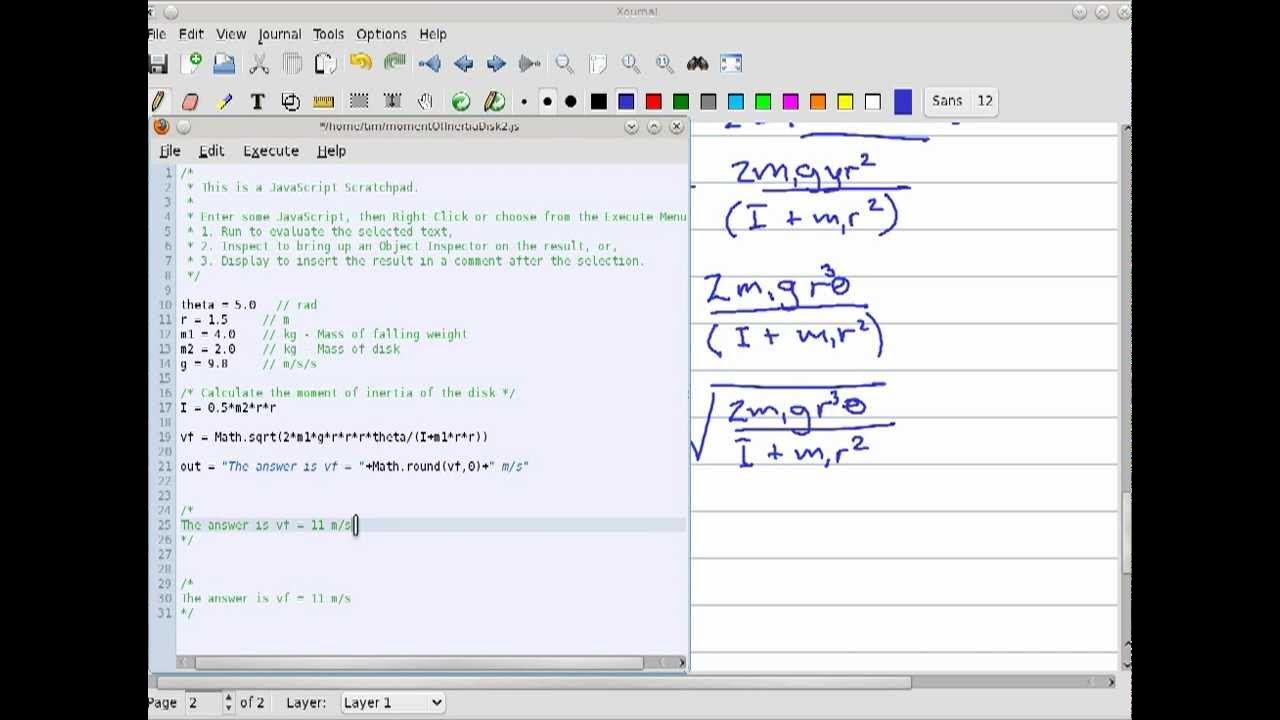 Xournal
File Edit View Journal Tools Options Help
Sans 12
*/home/tim/momentOfInertiaDisk2.js
File Edit Execute Help
1 /*
2 * This is a JavaScript Scratchpad.
3 *
4 * Enter some JavaScript, then Right Click or choose from the Execute Menu
5 * 1. Run to evaluate the selected text,
6 * 2. Inspect to bring up an Object Inspector on the result, or,
7 * 3. Display to insert the result in a comment after the selection.
8 */
9
10 theta = 5.0 // rad
11 r = 1.5 // m
12 m1 = 4.0 // kg - Mass of falling weight
13 m2 = 2.0 // kg - Mass of disk
14 g = 9.8 // m/s/s
15
16 /* Calculate the moment of inertia of the disk */
17 I = 0.5*m2*r*r
18
19 vf = Math.sqrt(2*m1*g*r*r*r*theta/(I+m1*r*r))
20
21 out = "The answer is vf = "+Math.round(vf,0)+" m/s"
22
23
24 /*
25 The answer is vf = 11 m/s
26 */
27
28
29 /*
30 The answer is vf = 11 m/s
31 */
2m₁gyr²
(I + m₁r²)
2m₁gr³θ
(I + m₁r²)
√
2m₁gr³θ
I + m₁r²
Page 2 of 2 Layer: Layer 1